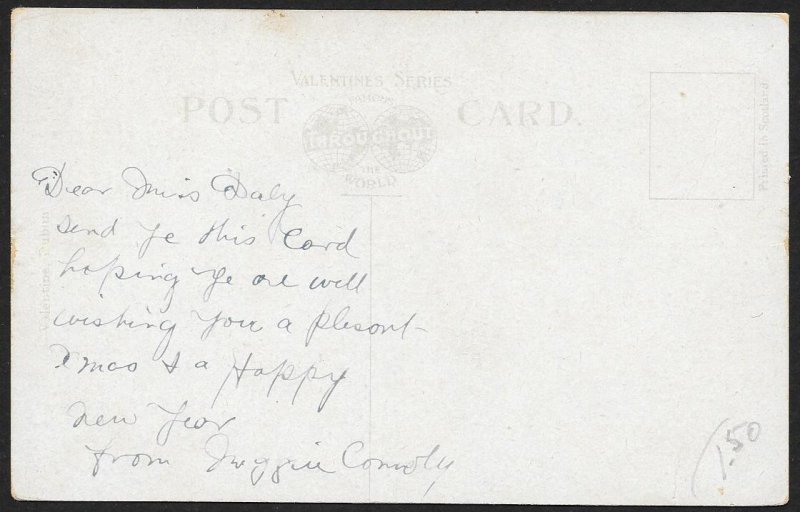 VALENTINES SERIES
POST CARD.
FAMOUS
THROUGHOUT
THE
WORLD
Printed in Scotland
Valentine, Dublin
Dear Miss Daly
send ye this Card
hoping ye are well
wishing you a plesant
Xmas & a Happy
new Year
from Maggie
1.50